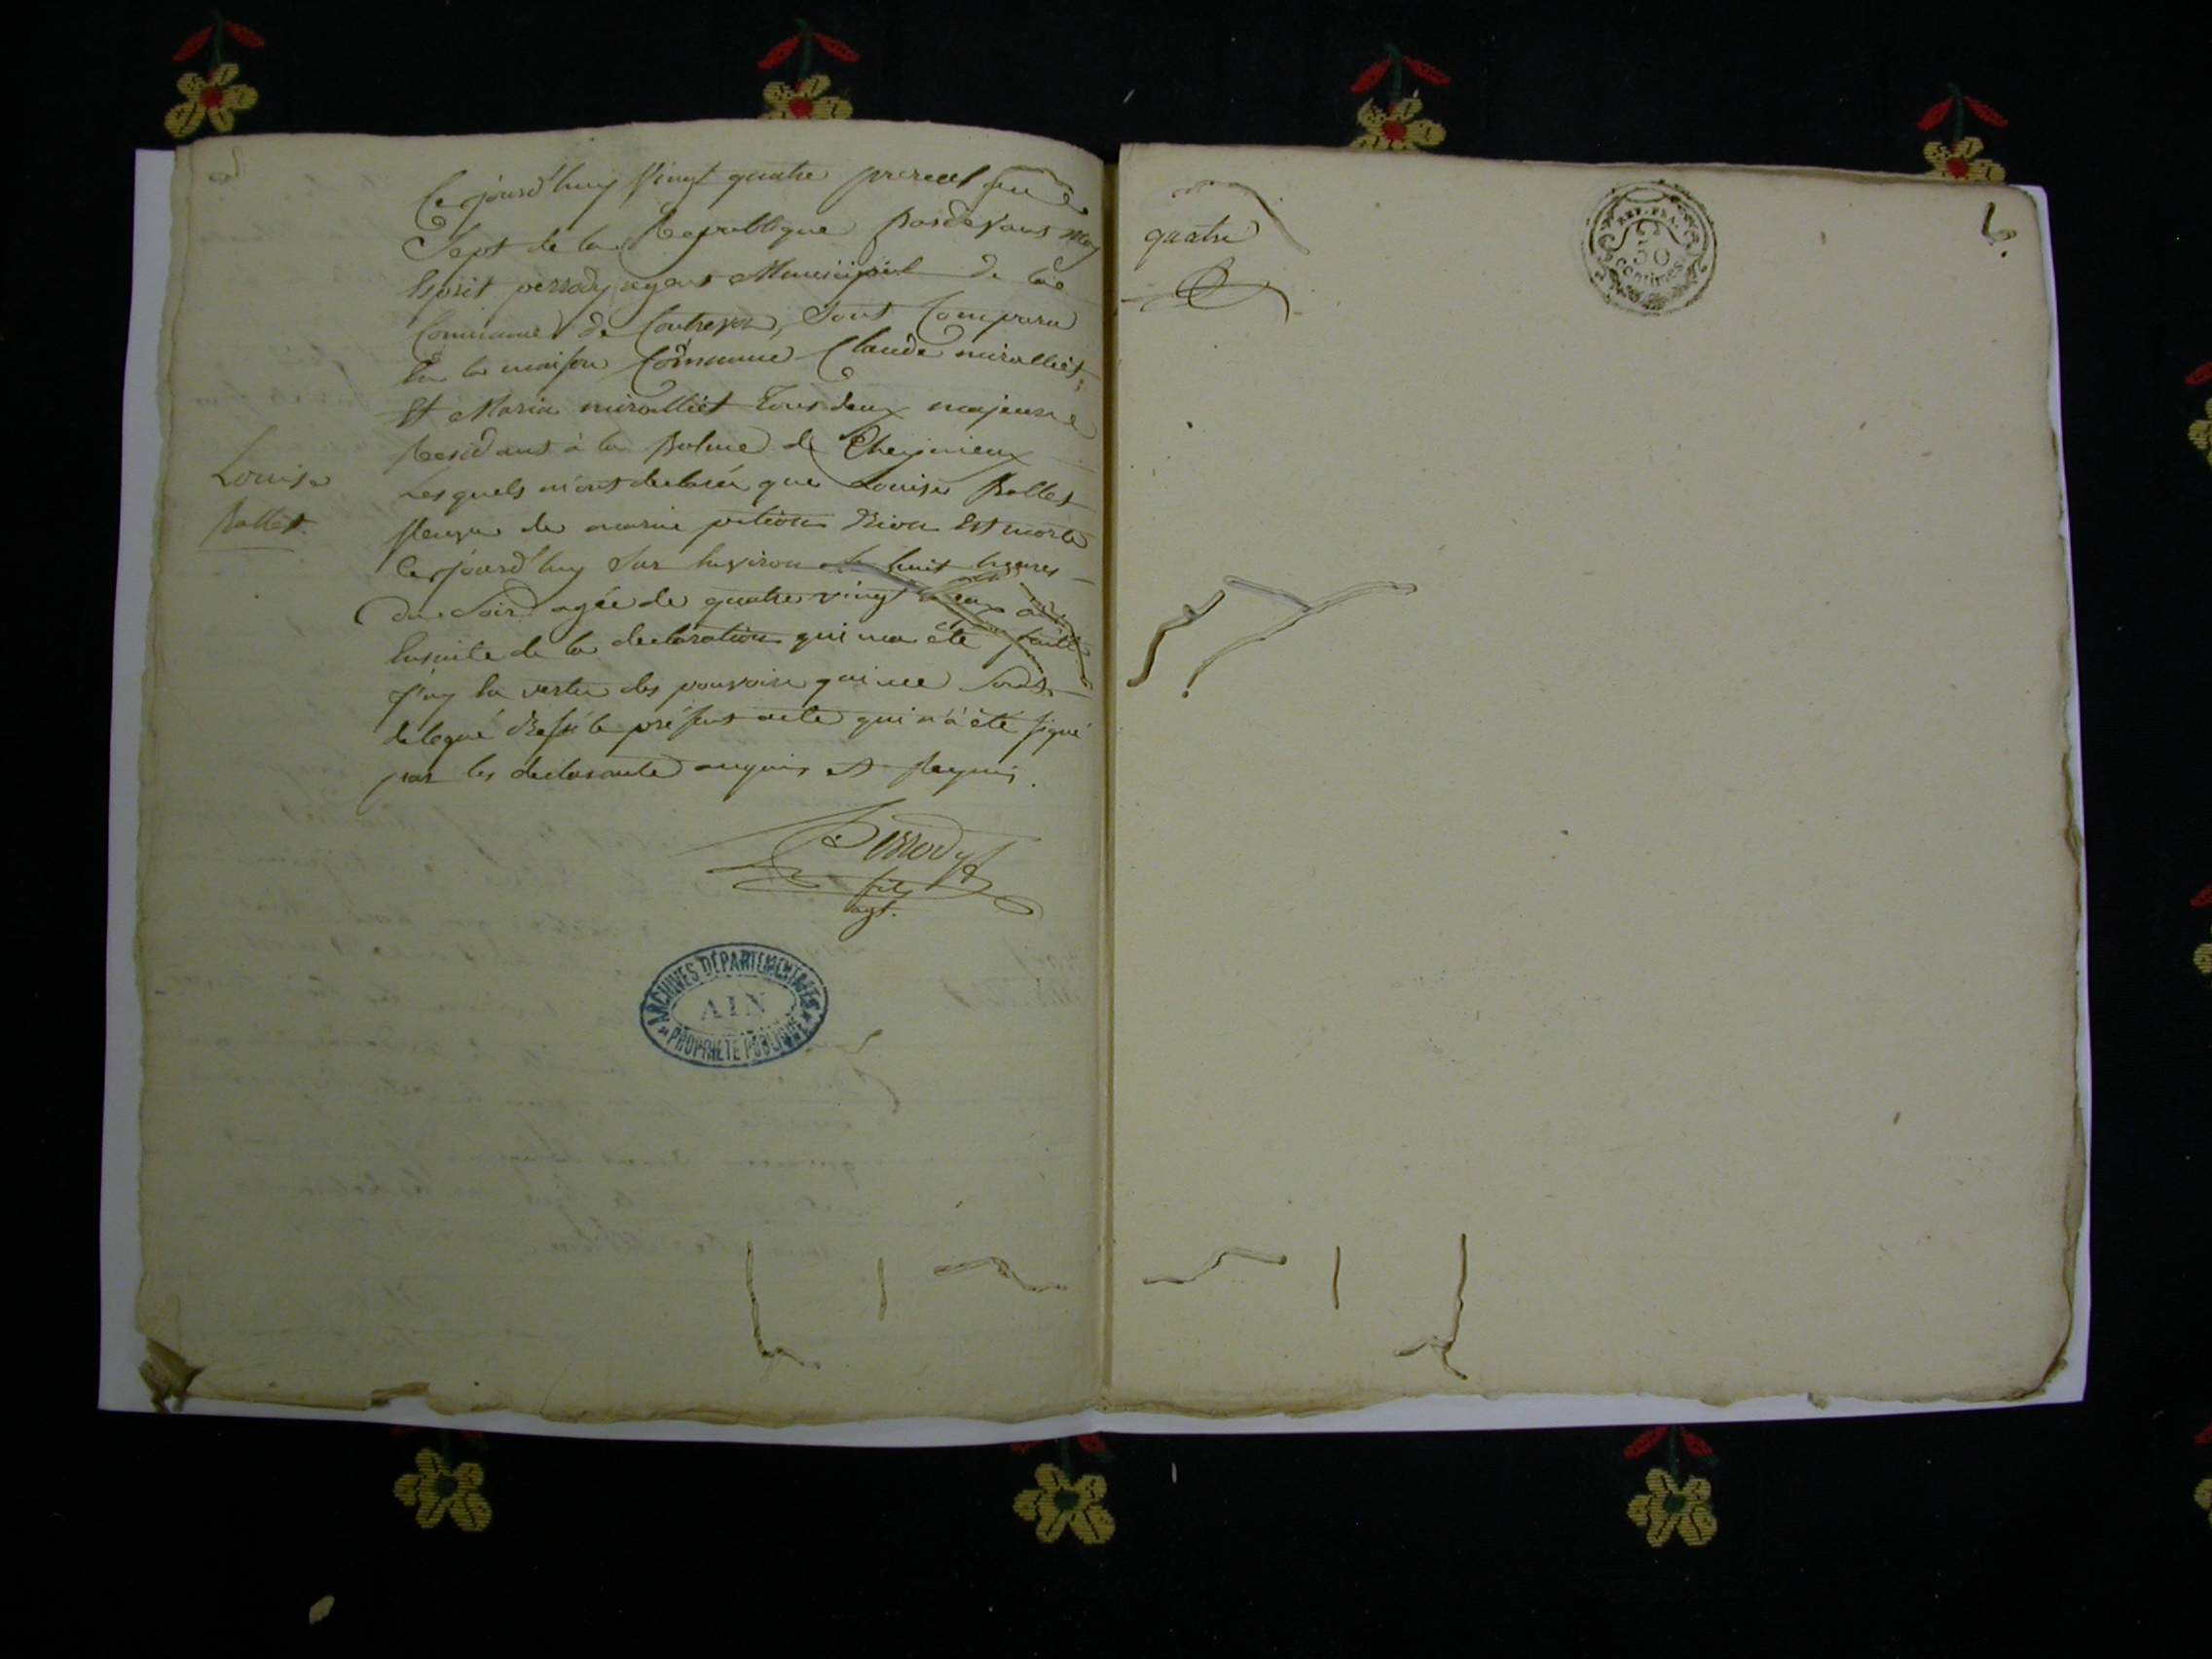 Cejourd'huy Vingt quatre prereal an
Sept de la Republique Pardevant moy
Esprit perrody agent Municipal de la
Commune de Contrevoz, Sont Comparu
En la maison Commune Claude miralliet
Et Marie miralliet Tous deux majeurs
Residant à la Balme de Cheynieux
Lesquels m'ont declaré que Louise Ballet
veuve de marin Est morte
Cejourd'huy Sur Environ les huit heures
du Soir agée de quatre vingt
Ensuite de la declaration qui m'a été faitte
J'ay En vertu des pouvoirs qui me Sont
delegué dressé le présent acte qui n'a été signé
par les declarants enquis et requis.
Louise
Ballet.
Perrody
fils
agt.
ARCHIVES DÉPARTEMENTALES
AIN
PROPRIÉTÉ PUBLIQUE
quatre
REP. FRA.
50
centimes